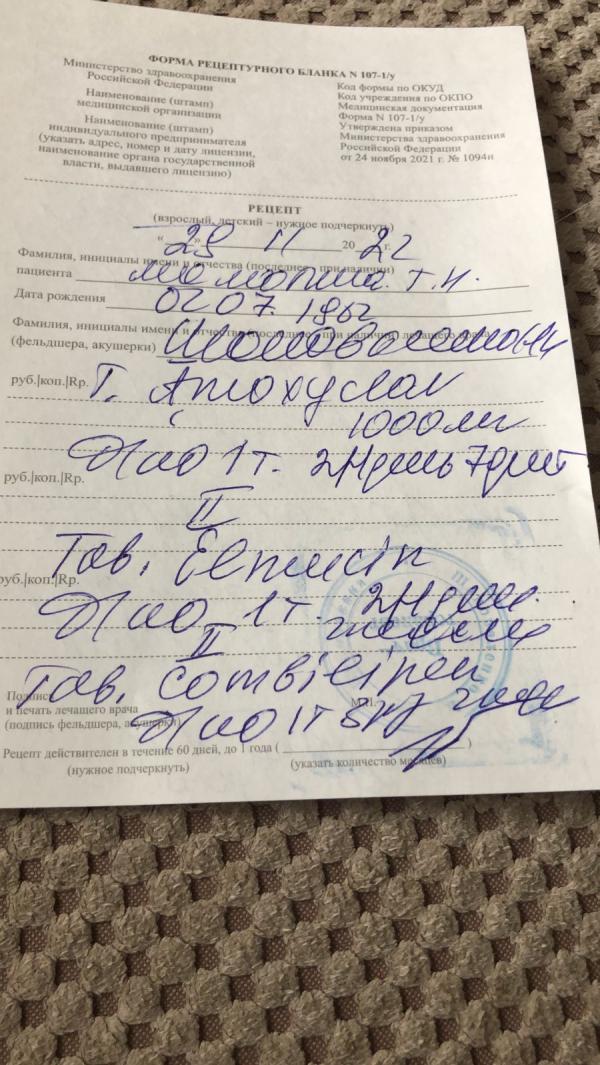 ФОРМА РЕЦЕПТУРНОГО БЛАНКА N 107-1/у
Министерство здравоохранения
Российской Федерации
Наименование (штамп)
медицинской организации
Наименование (штамп)
индивидуального предпринимателя
(указать адрес, номер и дату лицензии,
наименование органа государственной
власти, выдавшего лицензию)
Код формы по ОКУД
Код учреждения по ОКПО
Медицинская документация
Форма N 107-1/у
Утверждена приказом
Министерства здравоохранения
Российской Федерации
от 24 ноября 2021 г. № 1094н
РЕЦЕПТ
(взрослый, детский – нужное подчеркнуть)
« 29 » 11 20 22 г.
Фамилия, инициалы имени и отчества (последнее - при наличии)
пациента Т.Н.
Дата рождения 02 07. 1962
Фамилия, инициалы имени и отчества (последнее - при наличии) лечащего врача
(фельдшера, акушерки)
руб.|коп.|Rp. Т. Amoxyclav
1000 мг
по 1 т. 2 день 7 дней
руб.|коп.|Rp.
II
Таб.
руб.|коп.|Rp.
по 1 т. 2
II
Таб. combilipen
по 1 т
Подпись
и печать лечащего врача
(подпись фельдшера, акушерки)
М.П.
Рецепт действителен в течение 60 дней, до 1 года ( )
(нужное подчеркнуть) (указать количество месяцев)